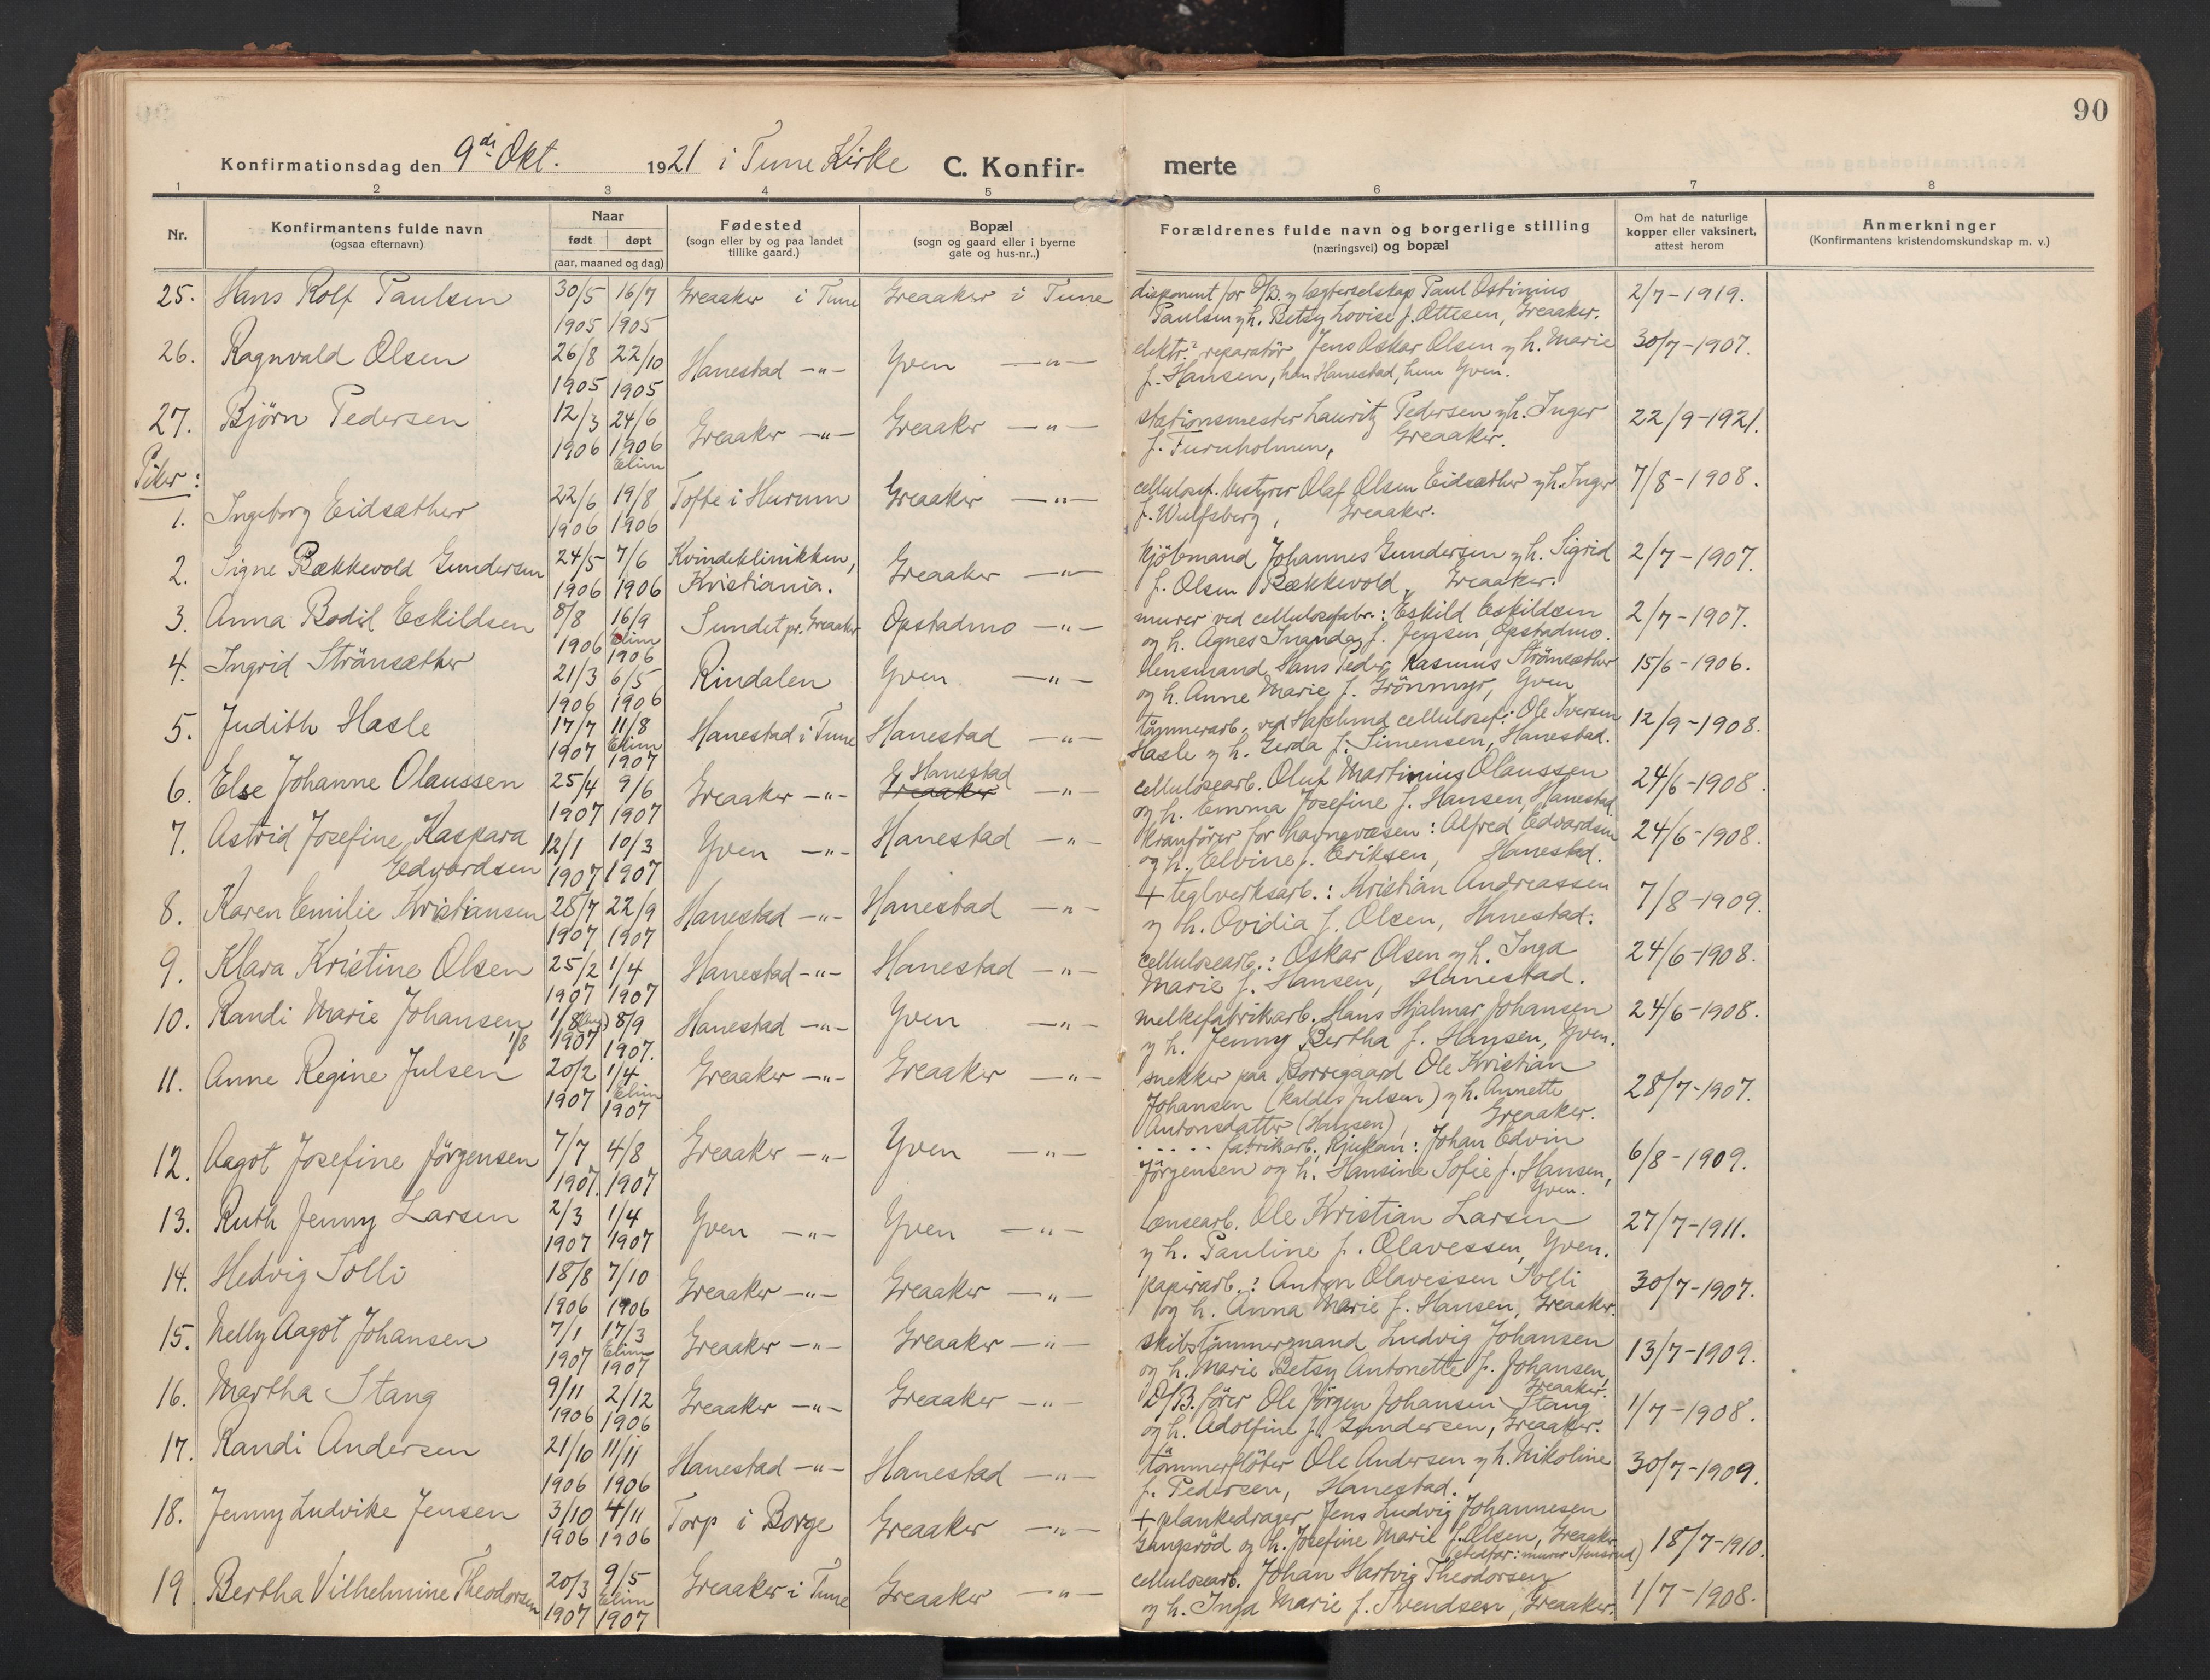 90
Konfirmationsdag den 9de Okt. 1921 i Tune Kirke C. Konfir- merte
1 2 3 4 5 6 7 8
Nr.
Konfirmantens fulde navn
(ogsaa efternavn)
Naar
født døpt
(aar, maaned og dag)
Fødested
(sogn eller by og paa landet
tillike gaard.)
Bopæl
(sogn og gaard eller i byerne
gate og hus-nr..)
Forældrenes fulde navn og borgerlige stilling
(næringsvei) og bopæl
Om hat de naturlige
kopper eller vaksinert,
attest herom
Anmerkninger
(Konfirmantens kristendomskundskap m. v.)
25. Hans Rolf Paulsen 30/5 16/7 Greaaker i Tune Greaaker i Tune disponent for D/B. og lægterselskap Paul Ostinius 2/7-1919.
1905 1905 Paulsen og h. Betsy Lovise f. Ottesen, Greaaker.
26. Ragnvald Olsen 26/8 22/10 Hanestad -"- Yven -"- elektr. reparatör Jens Oskar Olsen og h. Marie 30/7-1907.
1905 1905 f. Hansen, han Hanestad, hun Yven.
27. Björn Pedersen 12/3 24/6 Greaaker -"- Greaaker -"- stationsmester Lauritz Pedersen og h. Inger 22/9-1921.
1906 1906 f. Furuholmen, Greaaker.
Piker: Elim
1. Ingeborg Eidsæther 22/6 19/8 Tofte i Hurum Greaaker -"- cellulosef. bestyrer Olaf Olsen Eidsæther og h. Inger 7/8-1908.
1906 1906 f. Wulfsberg, Greaaker.
2. Signe Bækkevold Gundersen 24/5 7/6 Kvindeklinikken, Greaaker -"- kjöbmand Johannes Gundersen og h. Sigrid 2/7-1907.
1906 1906 Kristiania. f. Olsen Bækkevold, Greaaker.
3. Anna Bodil Eskildsen 8/8 16/9 Sundet pr. Greaaker Opstadmo -"- murer ved cellulosefabr.: Eskild Eskildsen 2/7-1907.
1906 Elim 1906 og h. Agnes Inanda f. Jensen, Opstadmo.
4. Ingrid Strömsæther 21/3 6/5 Rindalen Yven -"- lensmand Hans Peder Rasmus Strömsæther 15/6-1906.
1906 1906 og h. Anne Marie f. Grönmyr, Yven
5. Judith Hasle 17/7 11/8 Hanestad i Tune Hanestad -"- tömmerarb. ved Hafslund cellulosef: Ole Iversen 12/9-1908.
1907 Elim 1907 Hasle og h. Gerda f. Simensen, Hanestad.
6. Else Johanne Olaussen 25/4 9/6 Greaaker -"- Hanestad Greaaker -"- cellulosearb. Oluf Martinius Olaussen 24/6-1908.
1907 1907 og h. Emma Josefine f. Hansen, Hanestad.
7. Astrid Josefine Kaspara 12/1 10/3 Yven -"- Hanestad -"- kranförer for havnevæsen: Alfred Edvardsen 24/6-1908.
Edvardsen 1907 1907 og h. Elvine f. Eriksen, Hanestad.
8. Karen Emilie Kristiansen 28/7 22/9 Hanestad -"- Hanestad -"- + teglverksarb.: Kristian Andreassen 7/8-1909.
1907 1907 og h. Ovidia f. Olsen, Hanestad.
9. Klara Kristine Olsen 25/2 1/4 Hanestad -"- Hanestad -"- cellulosearb.: Oskar Olsen og h. Inga 24/6-1908.
1907 1907 Marie f. Hansen, Hanestad.
10. Randi Marie Johansen 1/8 8/9 Hanestad -"- Yven -"- melkefabrikarb. Hans Hjalmar Johansen 24/6-1908.
1/8 1907 1907. og h. Jenny Bertha f. Hansen, Yven.
11. Anne Regine Julsen 20/2 1/4 Greaaker -"- Greaaker -"- snekker paa Borregaard Ole Kristian 28/7-1907.
1907 Elim 1907 Johansen (kaldes Julsen) og h. Annette
Antonsdatter (Hansen), Greaaker.
12. Aagot Josefine Jörgensen 7/7 4/8 Greaaker -"- Yven -"- ..... fabrikarb. Rjukan: Johan Edvin 6/8-1909.
1907. 1907 Jörgensen og h. Hansine Sofie f. Hansen,
Yven.
13. Ruth Jenny Larsen 2/3 1/4 Yven -"- Yven -"- lensearb. Ole Kristian Larsen 27/7-1911.
1907 1907 og h. Pauline f. Olavessen, Yven.
14. Hedvig Solli 18/8 7/10 Greaaker -"- Greaaker -"- papirarb.: Anton Olavessen Solli 30/7-1907.
1906 1906 og h. Anna Marie f. Hansen, Greaaker.
15. Nelly Aagot Johansen 7/1 17/3 Greaaker -"- Greaaker -"- skibstömmermand Ludvig Johansen 13/7-1909.
1907 Elim 1907 og h. Marie Betsy Antonette f. Johansen,
Greaaker.
16. Martha Stang 9/11 2/12 Greaaker -"- Greaaker -"- D/B. förer Ole Jörgen Johansen Stang 1/7-1908.
1906 1906 og h. Adolfine f. Gundersen, Greaaker.
17. Randi Andersen 21/10 11/11 Hanestad -"- Hanestad -"- tömmerflöter Ole Andersen og h. Nikoline 30/7-1909.
1906 1906 f. Pedersen, Hanestad.
18. Jenny Ludvike Jensen 3/10 4/11 Torp i Borge Greaaker -"- + plankedrager Jens Ludvig Johannesen 18/7-1910.
1906 1906 Gangsröd og h. Josefine Marie f. Olsen, Greaaker
(stedfar: murer Stensrud)
19. Bertha Vilhelmine Theodorsen 20/3 9/5 Greaaker i Tune Greaaker -"- cellulosearb. Johan Hartvig Theodorsen 1/7-1908.
1907 Elim 1907 og h. Inga Marie f. Svendsen, Greaaker.